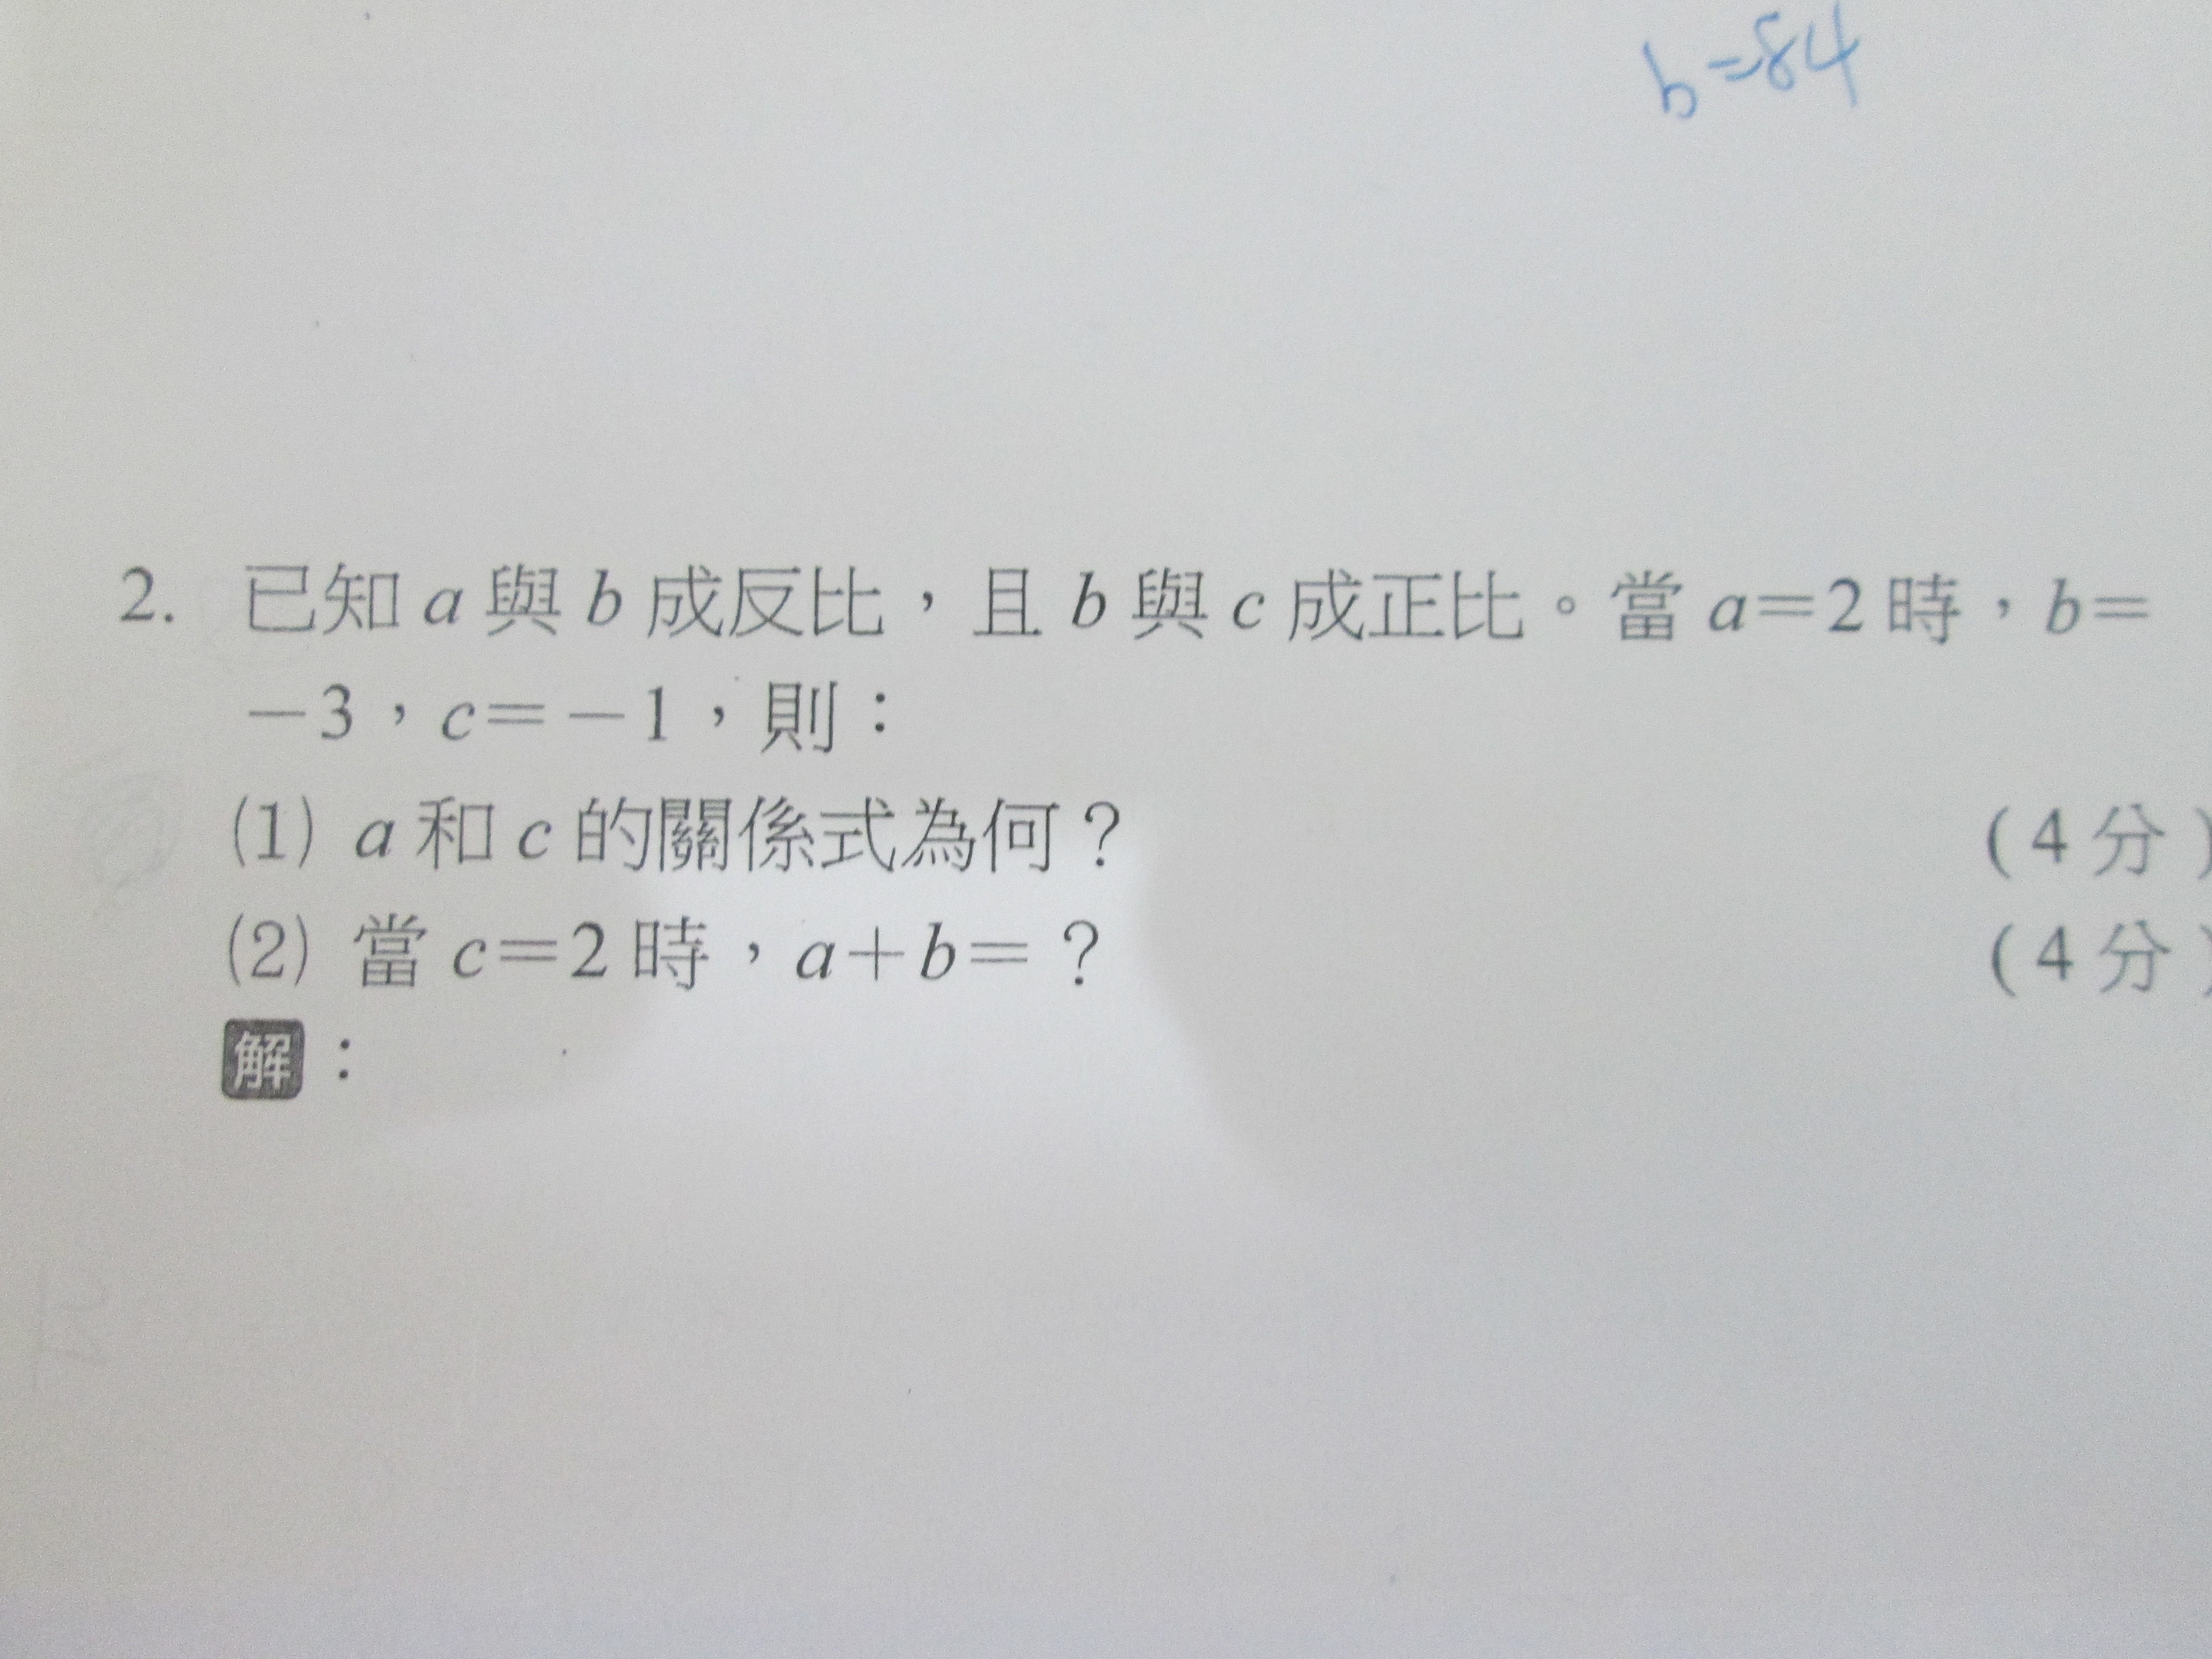 b=84
2. 已知 a 與 b 成反比，且 b 與 c 成正比。當 a=2 時，b=
-3，c=-1，則：
(1) a 和 c 的關係式為何？ (4分)
(2) 當 c=2 時，a+b=？ (4分)
解：